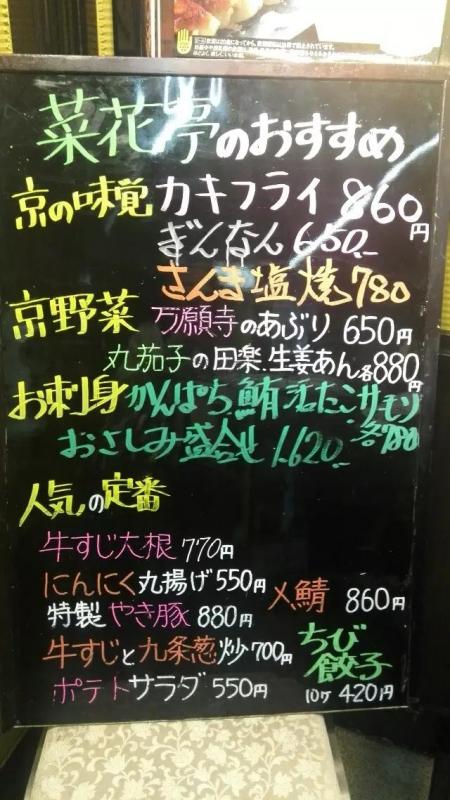 菜花亭のおすすめ
京の味覚 カキフライ 860円
ぎんなん 650.-
さんま塩焼 780
京野菜 万願寺のあぶり 650円
丸茄子の田楽.生姜あん各880円
お刺身 かんぱち.鮪.活たこ.サーモン各780
おさしみ盛合せ 1.620.-
人気の定番
牛すじ大根 770円
にんにく丸揚げ 550円
〆鯖 860円
特製やき豚 880円
牛すじと九条葱炒 700円
ちび餃子 10ヶ 420円
ポテトサラダ 550円